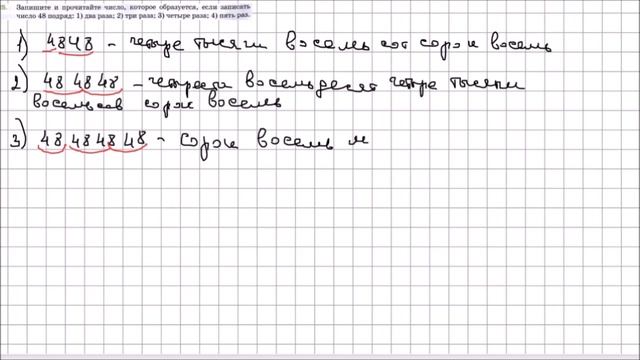 Запишите и прочитайте число, которое образуется, если записать
число 48 подряд: 1) два раза; 2) три раза; 3) четыре раза; 4) пять раз.
1) 4848 - четыре тысячи восемь сот сорок восемь
2) 48 48 48 - четыреста восемьдесят четыре тысячи
восемьсот сорок восемь
3) 48 48 48 48 - сорок восемь м